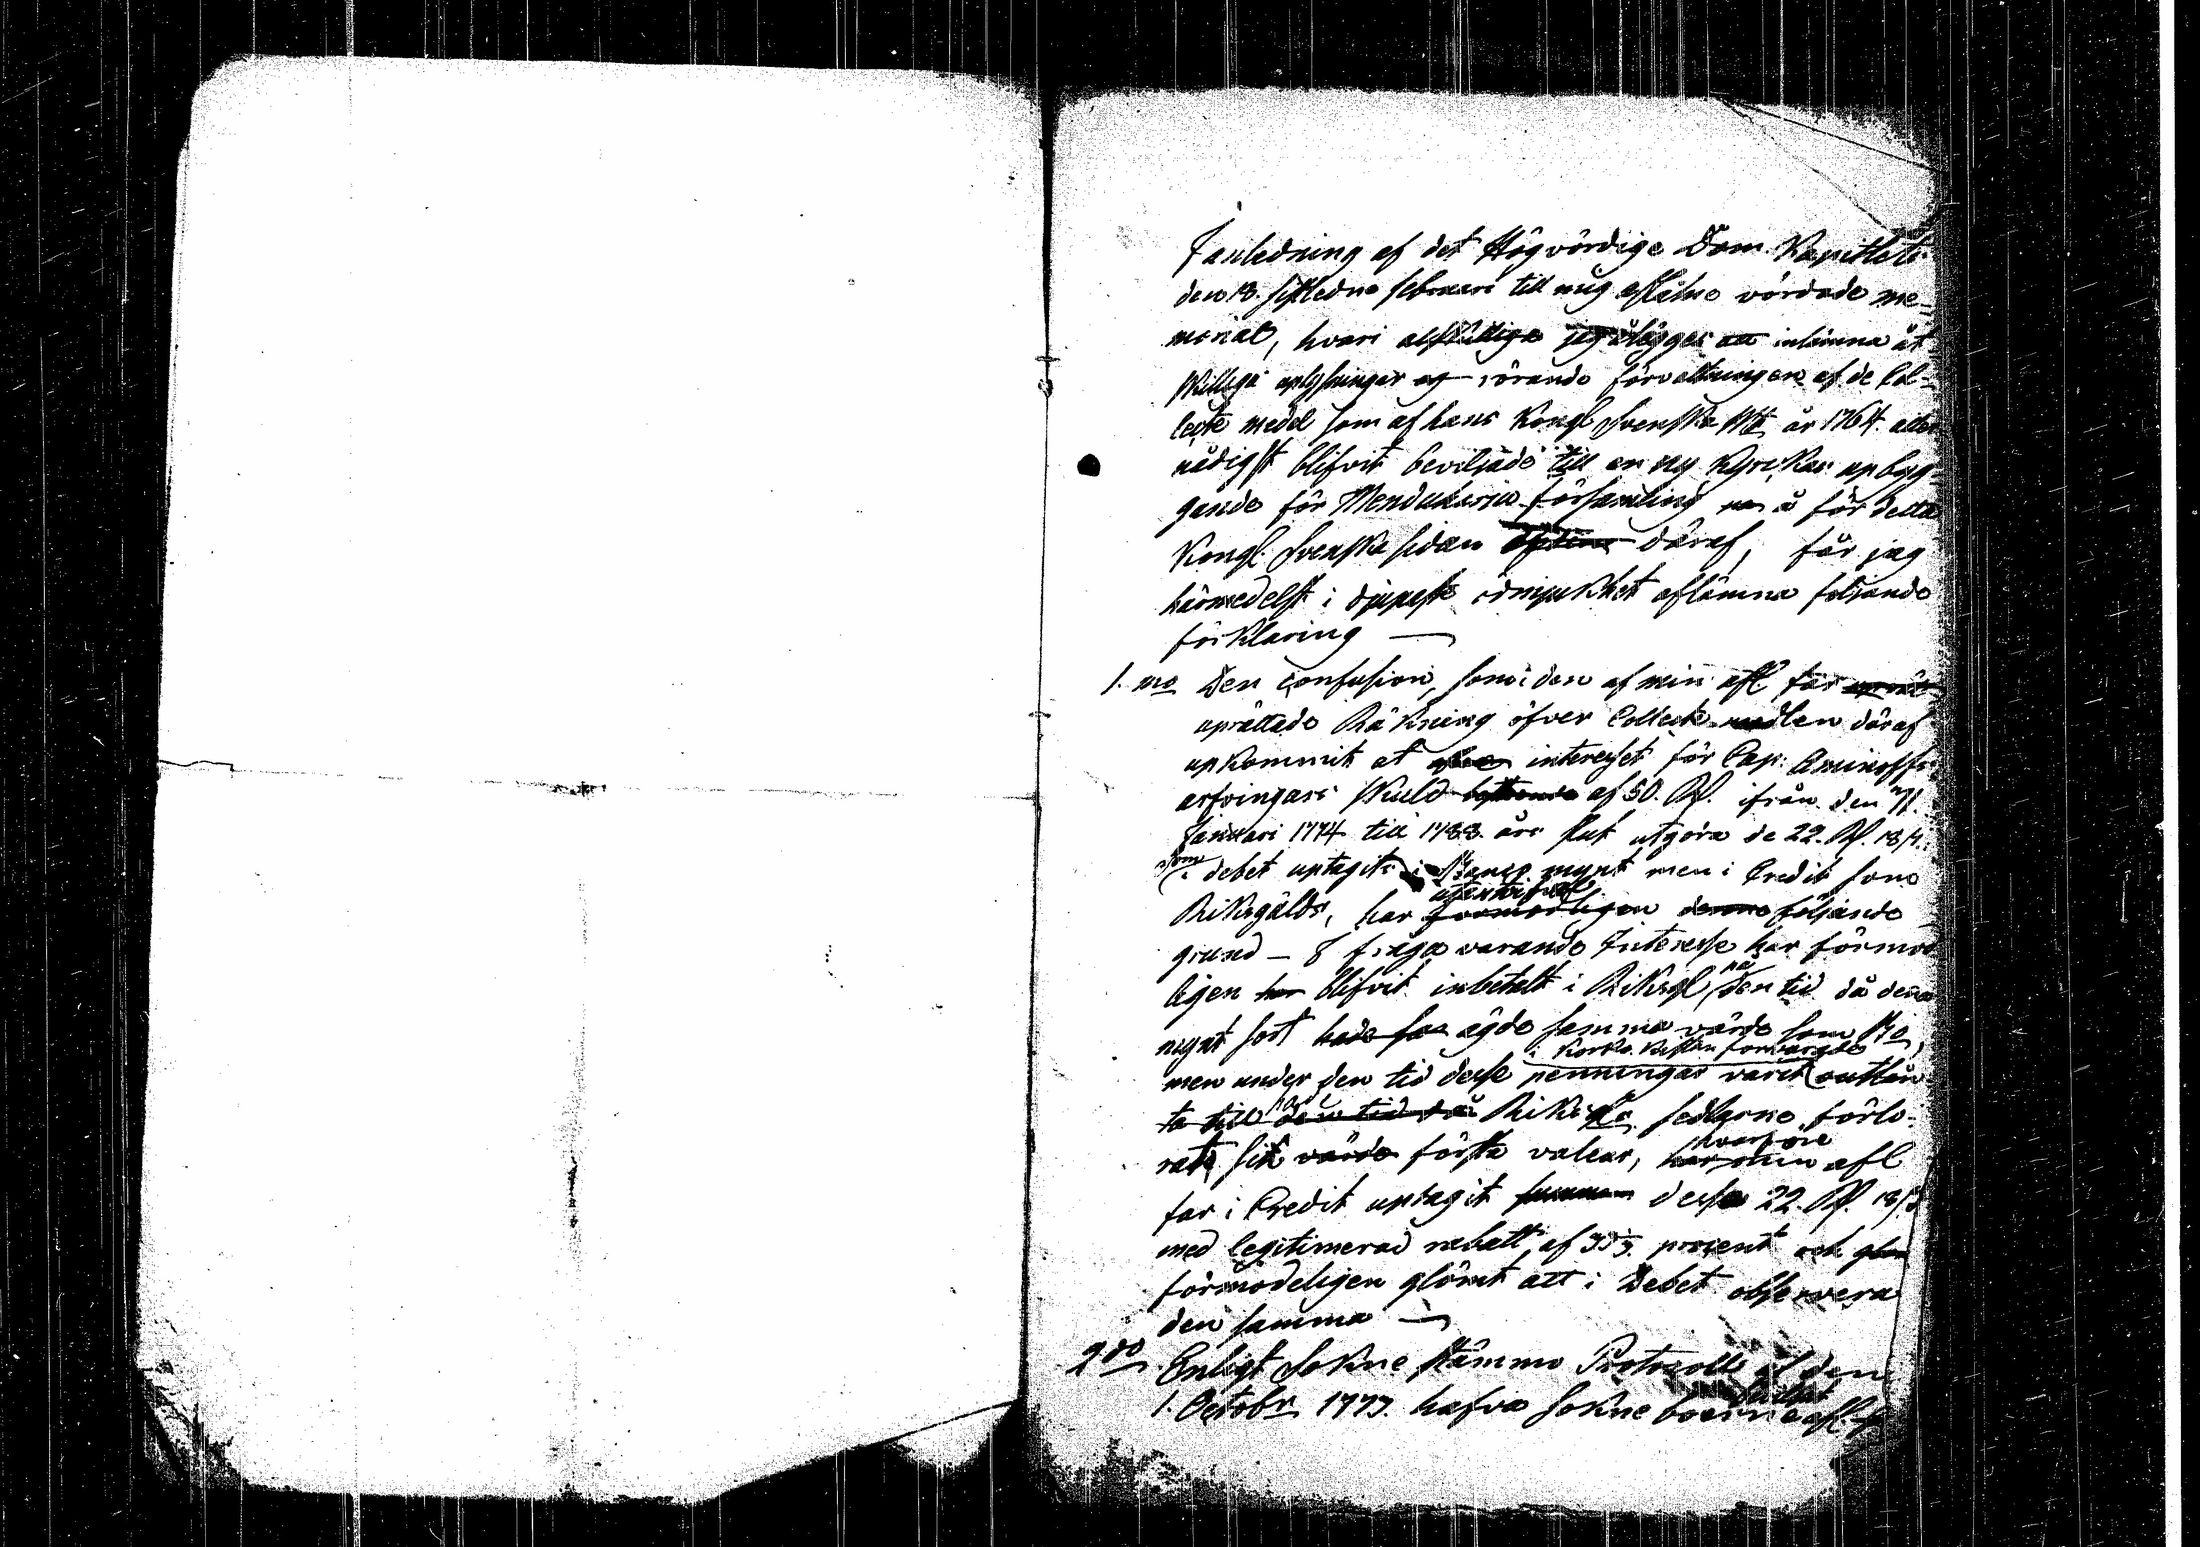 I anledning af det Högvördige Dom Kapitlets
den 18. sistledne februari till mig aflåtne vördade me-
morial, hvari jag ålägges att inlämna åt
skilliga uplysningar rörande förvaltningen af de Col-
lecte medel som af hans Kongl Svenska Mtt år 1764. aller
nådigst blifvit beviljade till en ny Kyrckas upbyg-
gande för Menduharju församling på för detta
Kongl. Svenska sidan däraf, får jag
härmedelst i djupaste ödmjukhet aflämna följande
förklaring —
1. mo Den confusion, som i den af min afl far
uprättade Räkning öfver Collect medlen däraf
upkommit at interesset för Cap: Aminoffs
arfvingars skuld af 50. Rd. ifrån den 1.
Januari 1774 till 1788 års slut utgöra de 22. Rd. 18/.
som i debet uptagits i mynt men i Credit som
Riksgälds, har följande
grund — I fråga varande Interesse har förmod
ligen har blifvit inbetalt i Riksgl på den tid då denna
mynt sort hade äga samma värde som Bo,
i Kyrko Kistan förvarade
men under den tid desse penningar varit
ta till den tid då Riksgls sedlarne förlo-
rat sit värde första valeur, hvarföre min afl
far i Credit uptagit summan desse 22. Rd. 18/
med legitimerad rabatt af 33⅓ procent och
förmodeligen glömt att i Debet observera
den samma —
2do Enligt Sokne stämmo Protocoll af den
1. Octobr 1777. hafva Sokne boerne afl. f